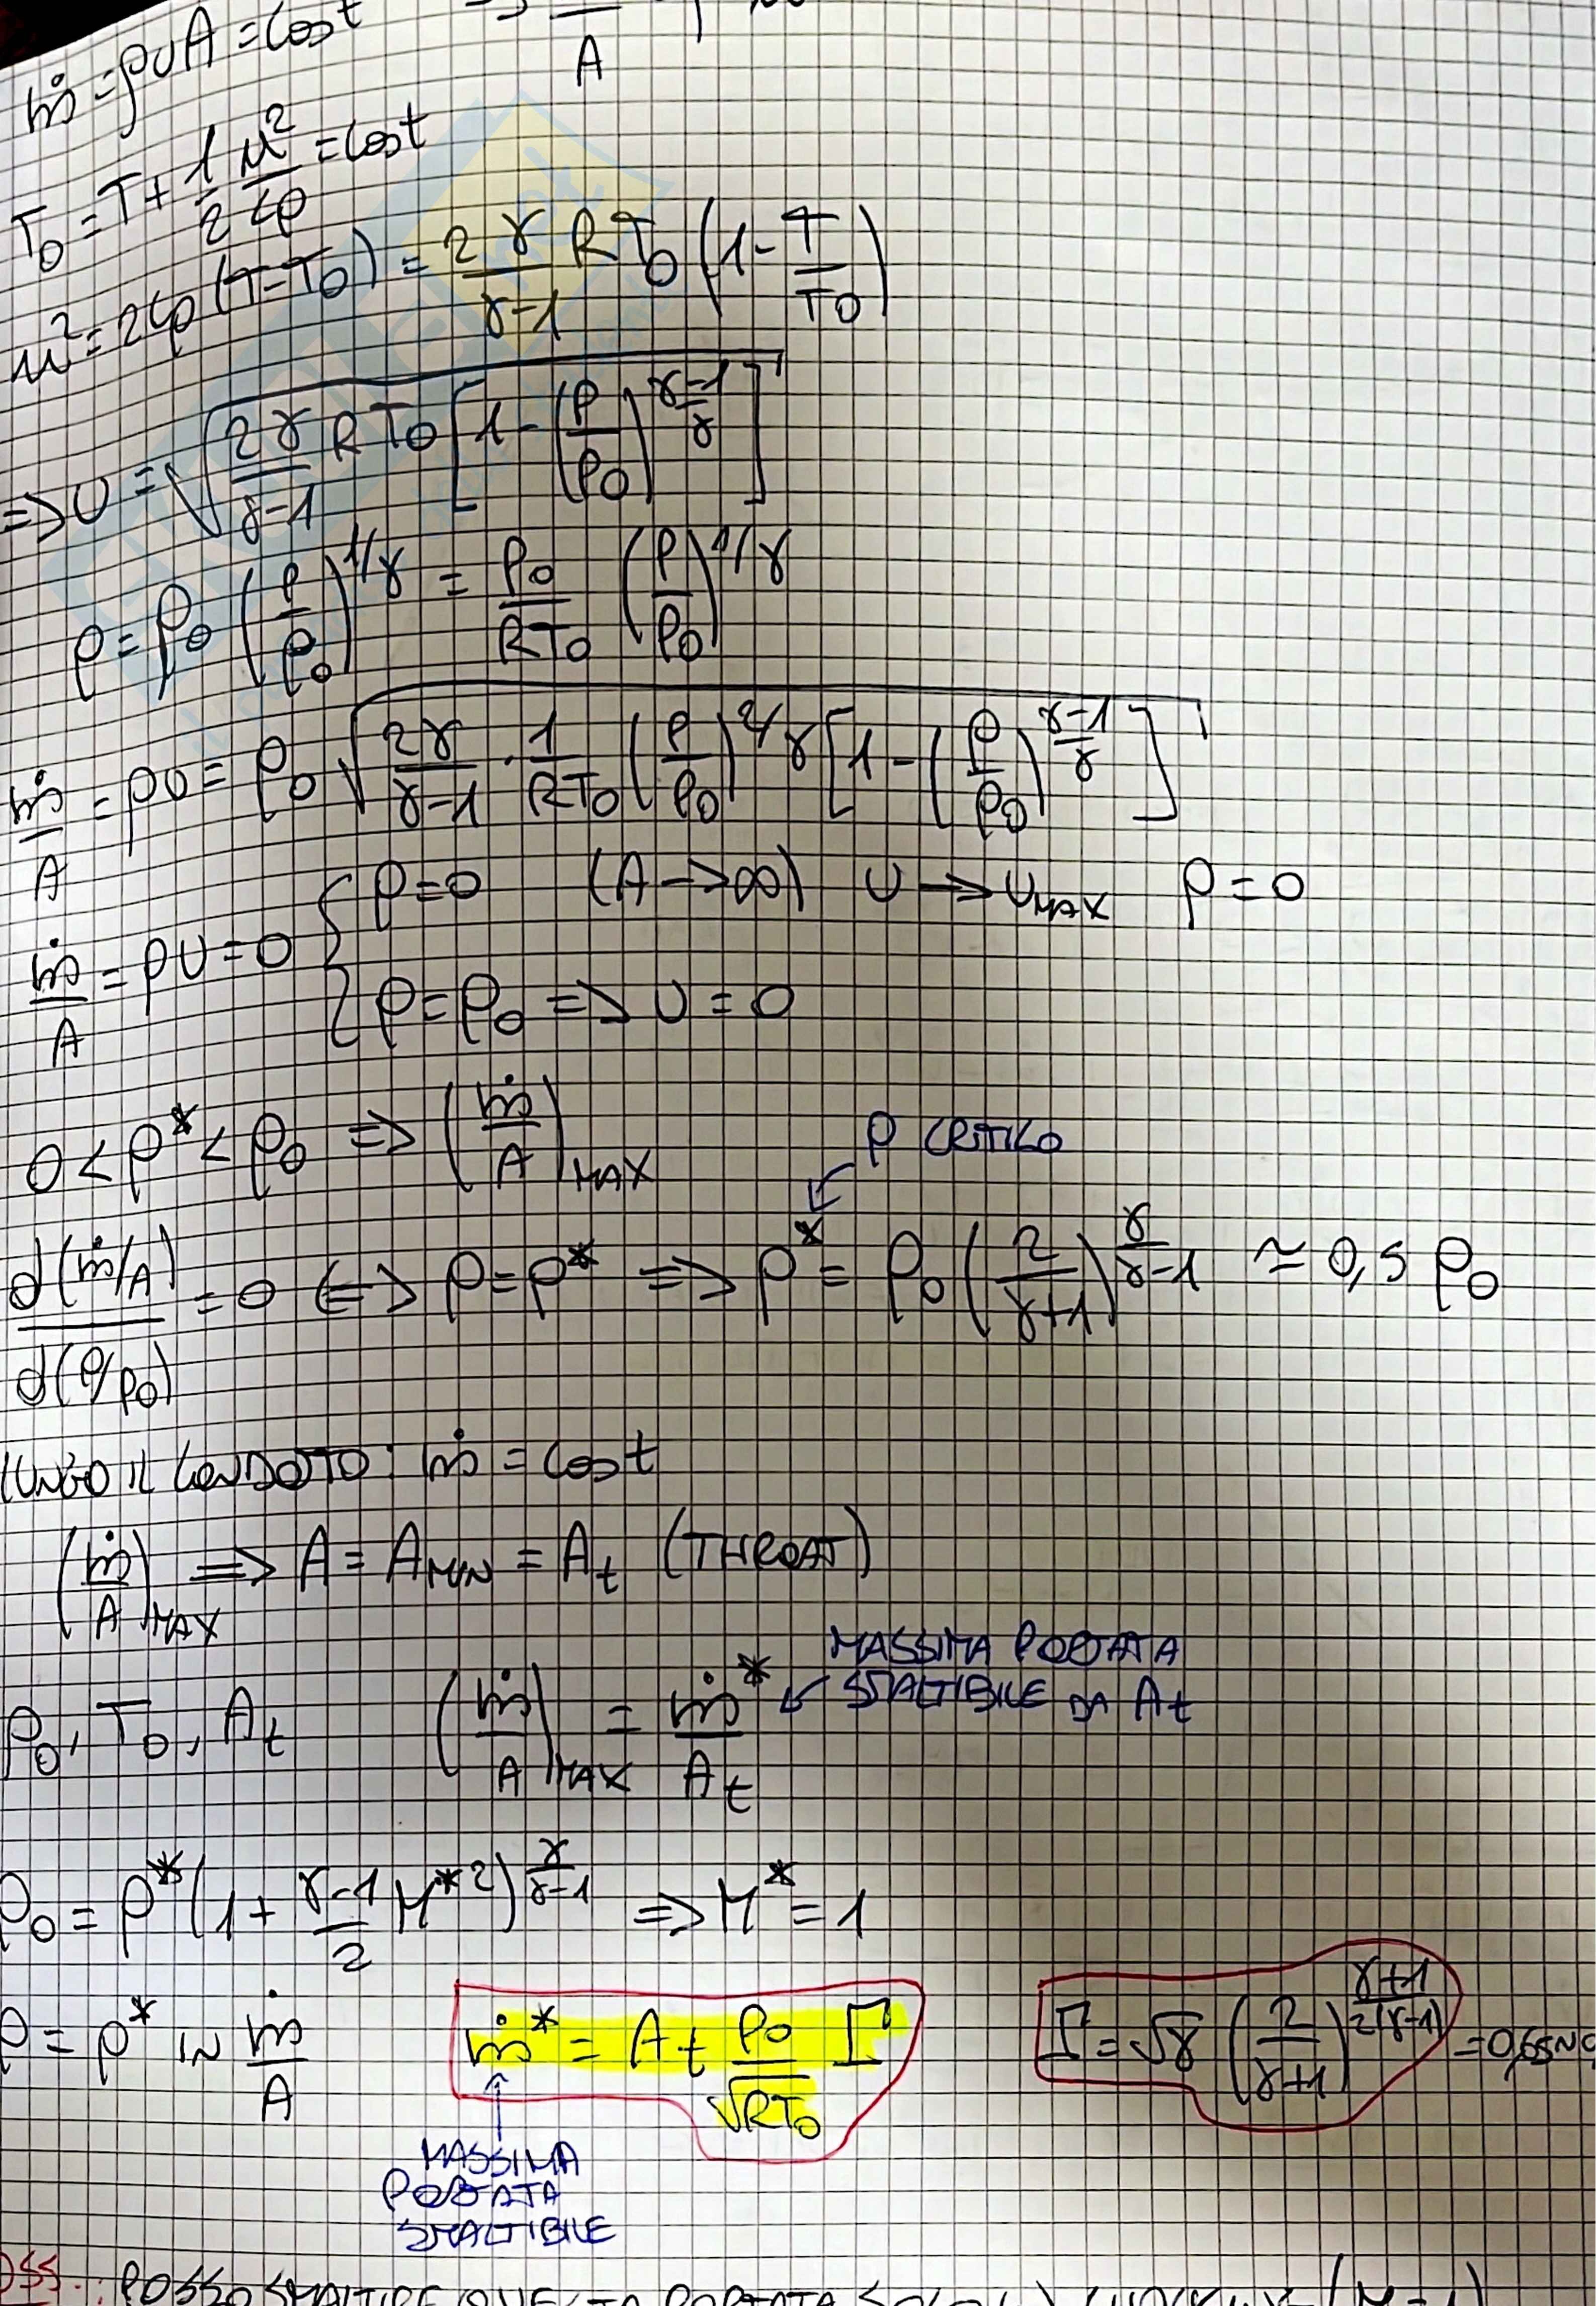 ṁ = ρUA = cost => — A
T₀ = T + 1/2 u²/cp = cost
u² = 2cp (T-T₀) = 2γ/(γ-1) RT₀ (1 - T/T₀)
=> U = √(2γ/(γ-1) RT₀ [1 - (p/p₀)^((γ-1)/γ)])
ρ = ρ₀ (p/p₀)^(1/γ) = p₀/(RT₀) (p/p₀)^(1/γ)
ṁ/A = ρU = p₀ √(2γ/(γ-1) · 1/(RT₀) (p/p₀)^(2/γ) [1 - (p/p₀)^((γ-1)/γ)])
ṁ/A = ρU = 0 { p = 0 (A -> ∞) U => U_MAX ρ = 0
p = p₀ => U = 0
0 < p* < p₀ => (ṁ/A)_MAX
p CRITICO
d(ṁ/A)/d(p/p₀) = 0 <=> p = p* => p* = p₀ (2/(γ+1))^(γ/(γ-1)) ≃ 0,5 p₀
LUNGO IL CONDOTTO: ṁ = cost
(ṁ/A)_MAX => A = A_MIN = A_t (THROAT)
p₀, T₀, A_t (ṁ/A)_MAX = ṁ*/A_t
MASSIMA PORTATA
SMALTIBILE DA A_t
p₀ = p* (1 + (γ-1)/2 M*²)^(γ/(γ-1)) => M* = 1
p = p* IN ṁ/A ṁ* = A_t p₀/√(RT₀) Γ Γ = √γ (2/(γ+1))^((γ+1)/(2(γ-1))) = 0,65
MASSIMA
PORTATA
SMALTIBILE
OSS.: POSSO SMALTIRE QUESTA PORTATA SOLO